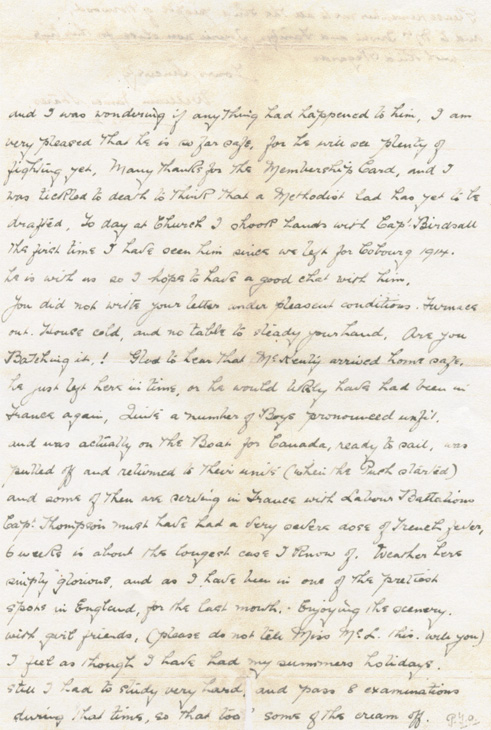 and I was wondering if anything had happened to him, I am
very pleased that he is so far safe, for he will see plenty of
fighting yet, Many thanks for the Membership Card, and I
was tickled to death to think that a Methodist lad has yet to be
drafted, To day at Church I shook hands with Capt Birdsall
the first time I have seen him since we left for Cobourg 1914.
he is with us so I hope to have a good chat with him,
You did not write your letter under pleasent conditions. Furnace
out. House cold, and no table to steady your hand, Are you
Batching it,! Glad to hear that McKenty arrived home safe.
he just left here in time, or he would likely have had been in
France again, Quite a number of Boys pronounced unfit,
and was actually on the Boat for Canada, ready to sail, was
pulled off and returned to their units (when the Push started)
and some of them are serving in France with Labour Battalions
Capt Thompson must have had a very severe dose of Trench fever,
6 weeks is about the longest case I know of. Weather here
simply glorious, and as I have been in one of the prettiest
spots in England, for the last month. Enjoying the scenery.
with girl friends, (please do not tell Miss McL. this. will you)
I feel as though I have had my summers holidays.
still I had to study very hard, and pass 8 examinations
during that time, so that too' some of the cream off. P.T.O.